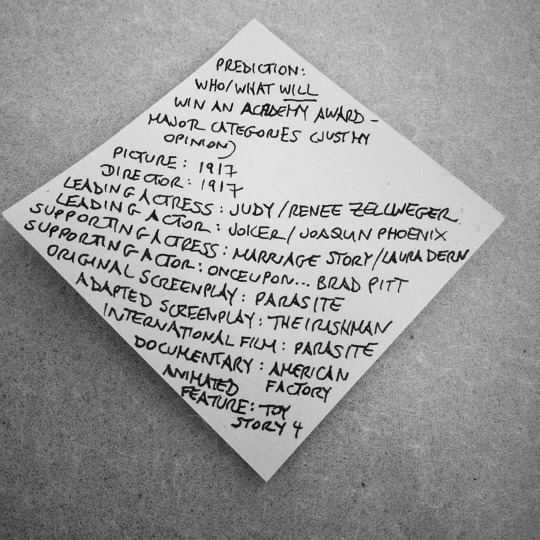 PREDICTION:
WHO/WHAT WILL
WIN AN ACADEMY AWARD -
MAJOR CATEGORIES (JUST MY
OPINION)
PICTURE: 1917
DIRECTOR: 1917
LEADING ACTRESS: JUDY/RENEE ZELLWEGER
LEADING ACTOR: JOKER/JOAQUIN PHOENIX
SUPPORTING ACTRESS: MARRIAGE STORY/LAURA DERN
SUPPORTING ACTOR: ONCE UPON... BRAD PITT
ORIGINAL SCREENPLAY: PARASITE
ADAPTED SCREENPLAY: THE IRISHMAN
INTERNATIONAL FILM: PARASITE
DOCUMENTARY: AMERICAN
FACTORY
ANIMATED
FEATURE: TOY
STORY 4